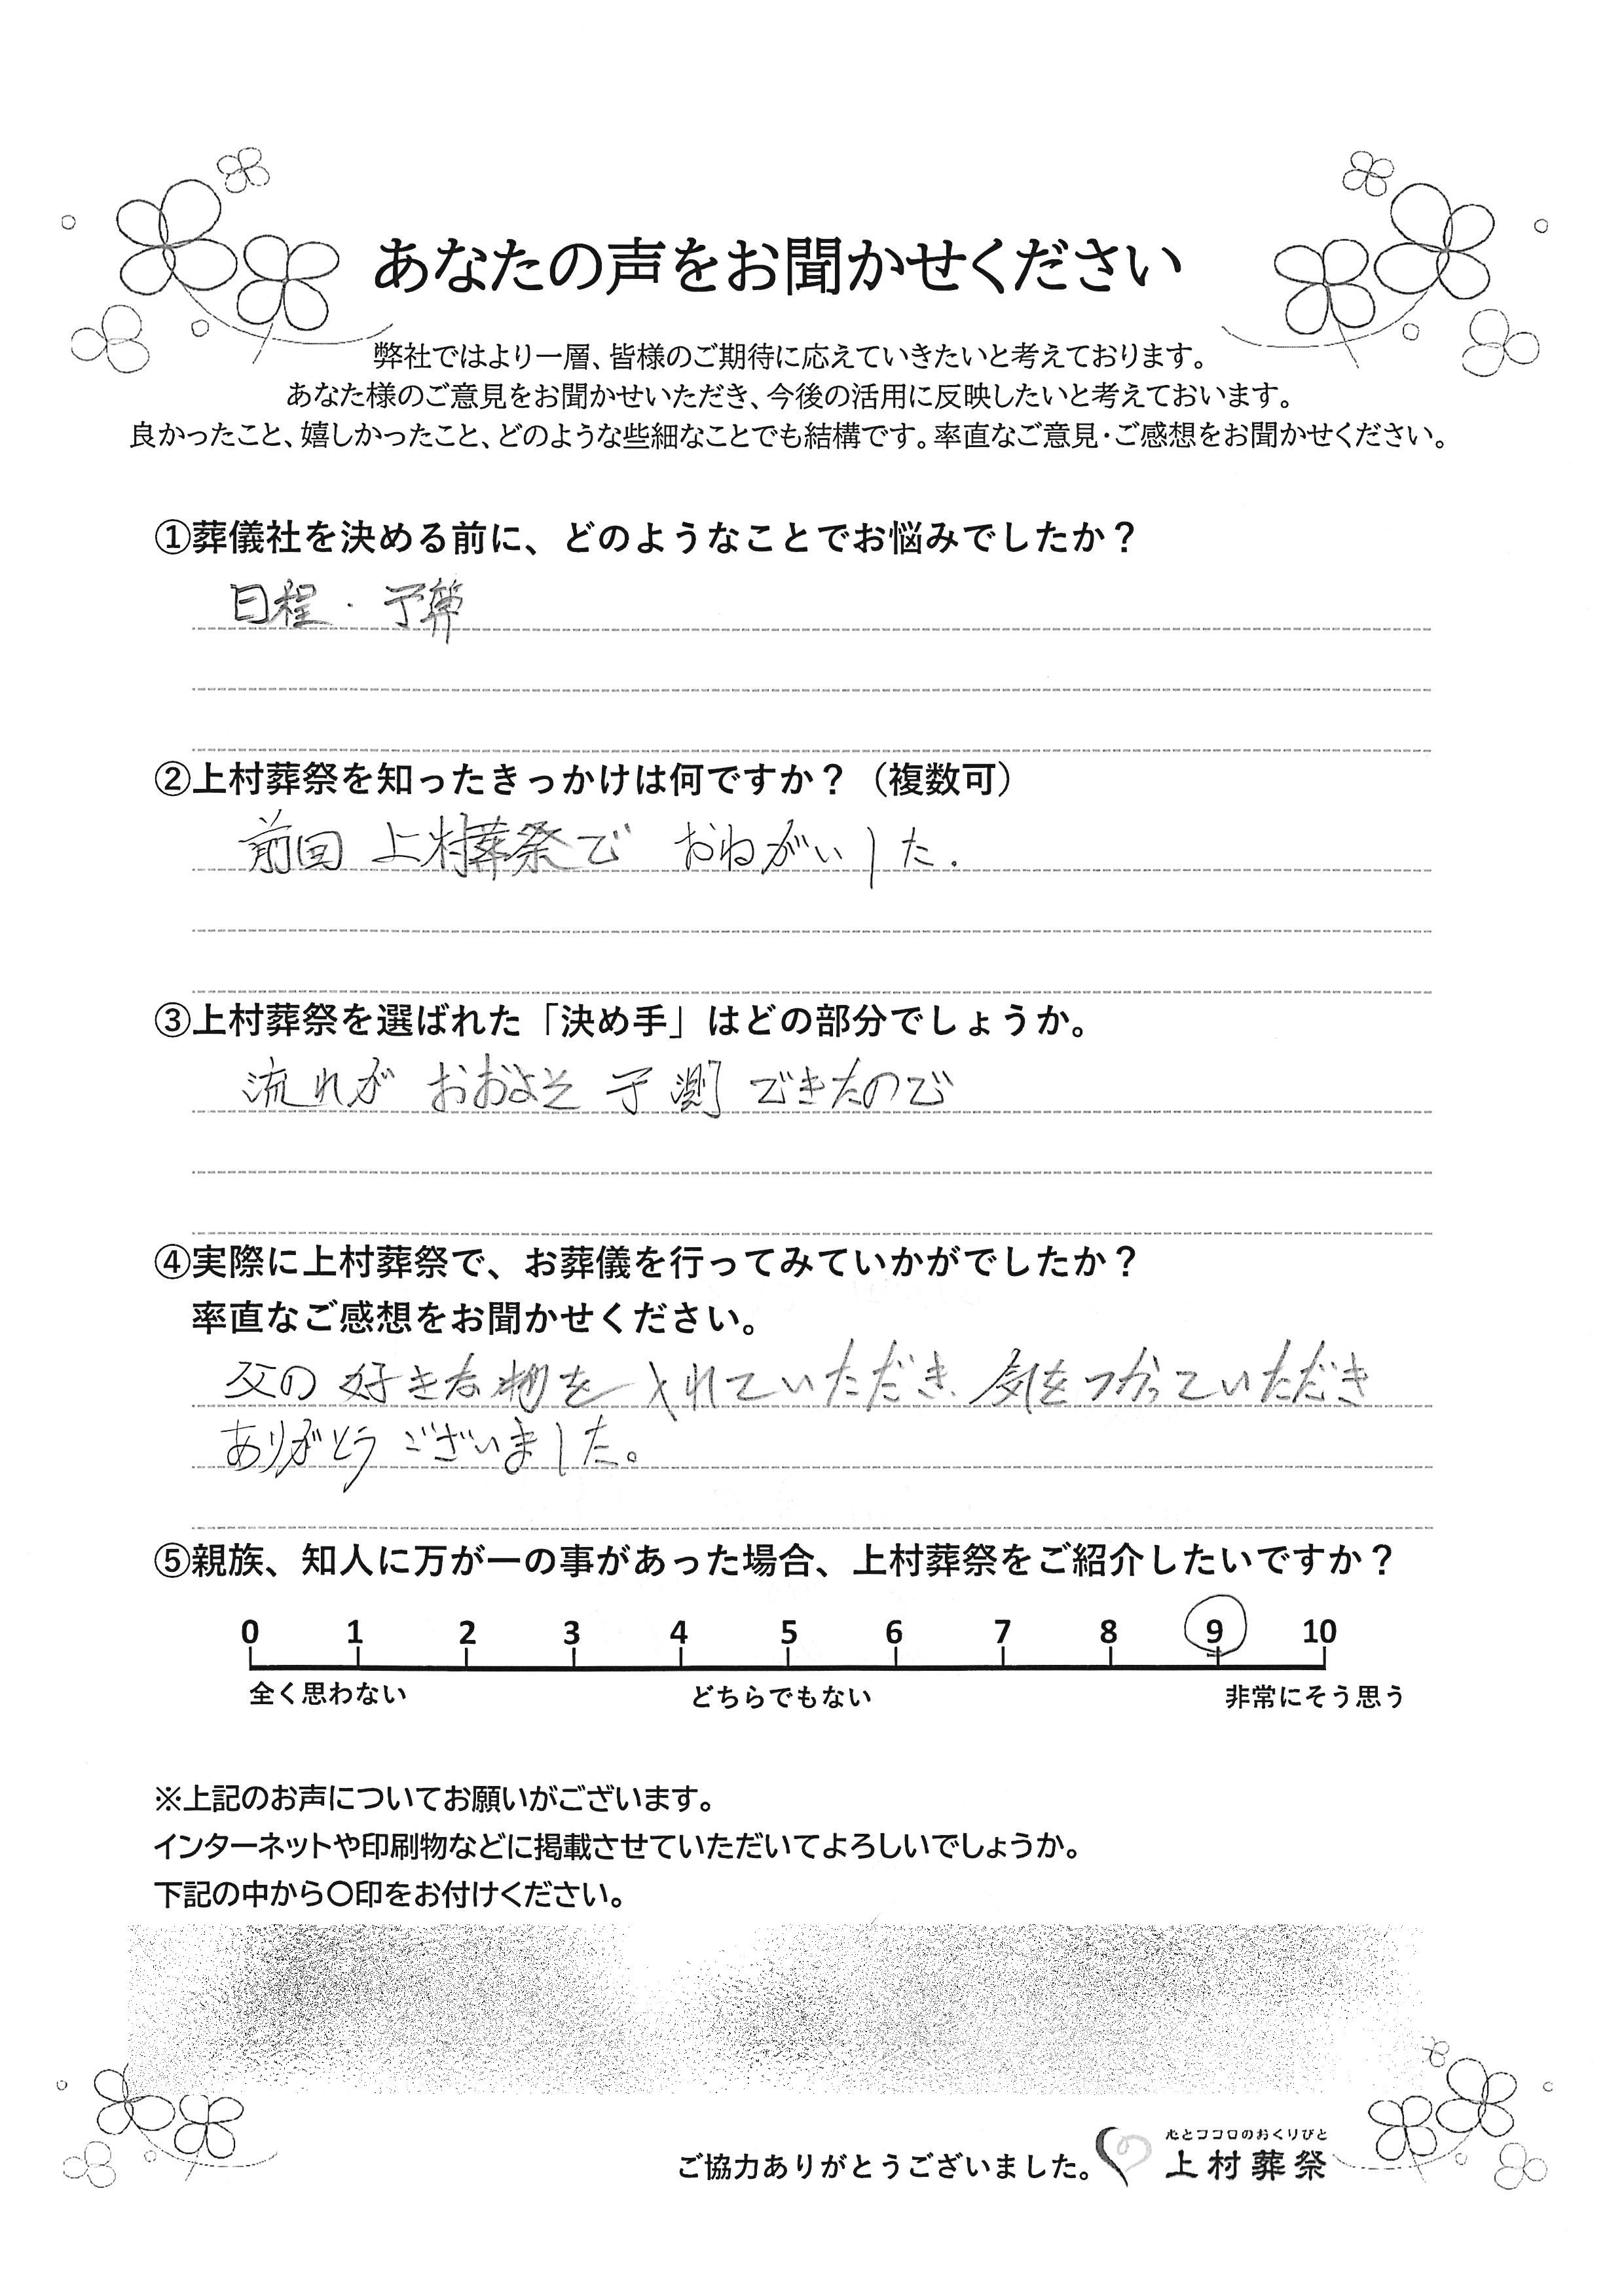 あなたの声をお聞かせください
弊社ではより一層、皆様のご期待に応えていきたいと考えております。
あなた様のご意見をお聞かせいただき、今後の活用に反映したいと考えておいます。
良かったこと、嬉しかったこと、どのような些細なことでも結構です。率直なご意見・ご感想をお聞かせください。
①葬儀社を決める前に、どのようなことでお悩みでしたか？
日程・予算
②上村葬祭を知ったきっかけは何ですか？（複数可）
前回 上村葬祭で おねがいした.
③上村葬祭を選ばれた「決め手」はどの部分でしょうか。
流れが おおよそ 予測 できたので
④実際に上村葬祭で、お葬儀を行ってみていかがでしたか？
率直なご感想をお聞かせください。
父の 好きな物を 入れていただき、気をつかっていただき
ありがとう ございました。
⑤親族、知人に万が一の事があった場合、上村葬祭をご紹介したいですか？
0 1 2 3 4 5 6 7 8 9 10
全く思わない どちらでもない 非常にそう思う
※上記のお声についてお願いがございます。
インターネットや印刷物などに掲載させていただいてよろしいでしょうか。
下記の中から〇印をお付けください。
心とココロのおくりびと
ご協力ありがとうございました。 上村葬祭